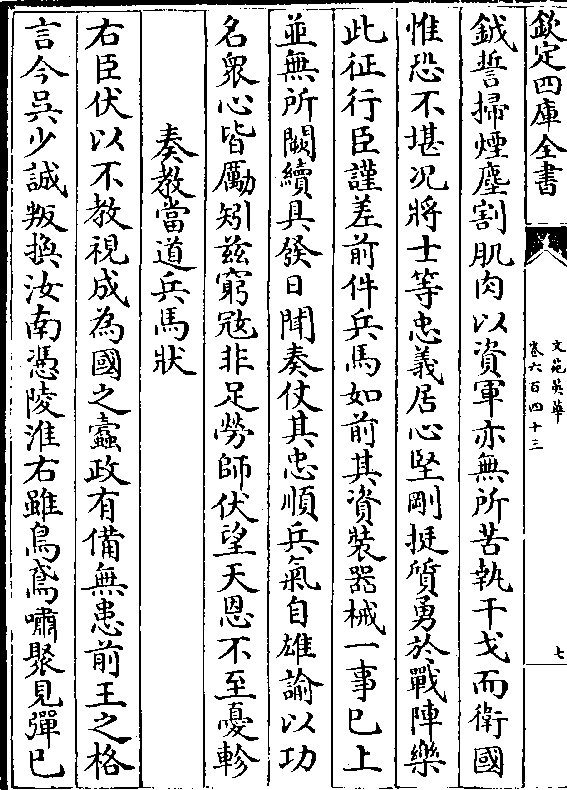 欽定四庫全書
文苑英華
卷六百四十三
七
鉞誓掃煙塵割肌肉以資軍亦無所苦執干戈而衛國
惟恐不堪况將士等忠義居心堅剛挺質勇於戰陣樂
此征行臣謹差前件兵馬如前其資裝器械一事已上
並無所闕續具發日聞奏仗其忠順兵氣自雄諭以功
名衆心皆勵矧兹窮寇非足勞師伏望天恩不至憂軫
奏教當道兵馬狀
右臣伏以不教視成為國之蠹政有備無患前王之格
言今吳少誠叛換汝南憑陵淮右雖烏鳶嘯聚見彈已